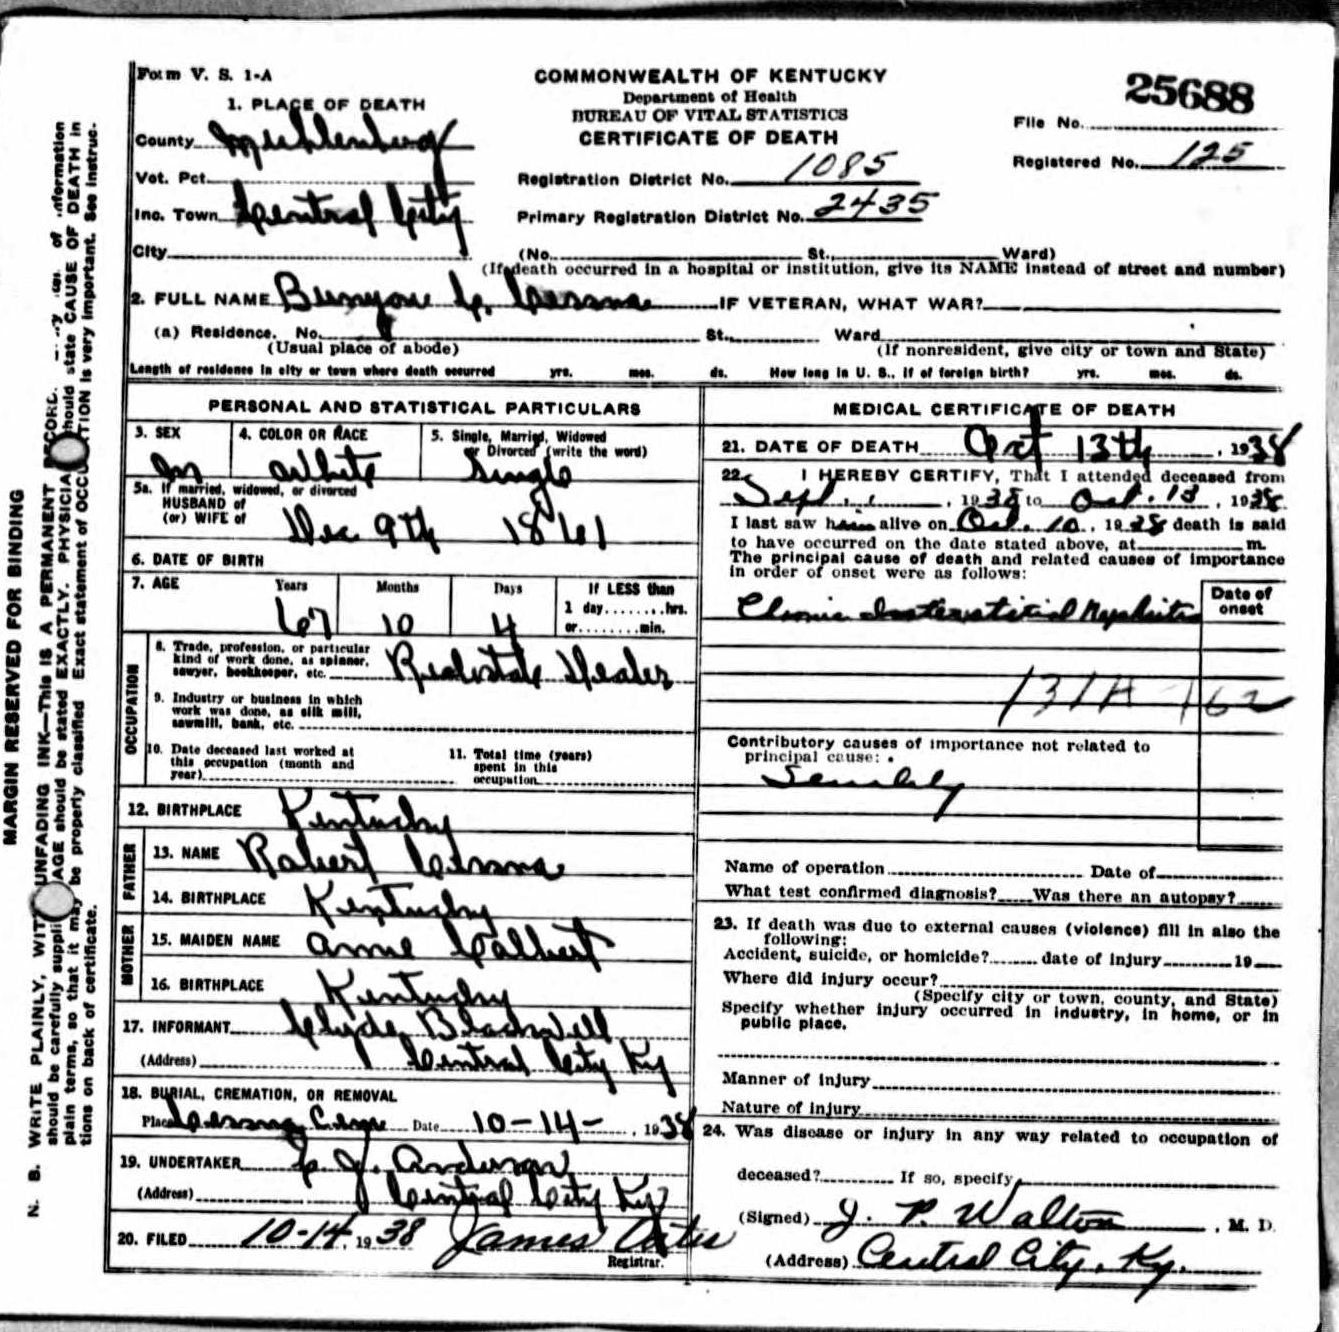 Form V. S. 1-A
COMMONWEALTH OF KENTUCKY
Department of Health
BUREAU OF VITAL STATISTICS
CERTIFICATE OF DEATH
25688
File No.
Registered No. 125
1. PLACE OF DEATH
County Muhlenberg
Vot. Pct.
Inc. Town Central City
City
Registration District No. 1085
Primary Registration District No. 2435
(No. St., Ward)
(If death occurred in a hospital or institution, give its NAME instead of street and number)
2. FULL NAME Bunyon C. Cessna IF VETERAN, WHAT WAR?
(a) Residence. No. St., Ward
(Usual place of abode) (If nonresident, give city or town and State)
Length of residence in city or town where death occurred yrs. mos. ds. How long in U. S., if of foreign birth? yrs. mos. ds.
PERSONAL AND STATISTICAL PARTICULARS
3. SEX M
4. COLOR OR RACE White
5. Single, Married, Widowed or Divorced (write the word) Single
5a. If married, widowed, or divorced
HUSBAND of
(or) WIFE of
6. DATE OF BIRTH Dec 9th 1861
7. AGE Years Months Days If LESS than
67 10 4 1 day........hrs.
or........min.
OCCUPATION
8. Trade, profession, or particular
kind of work done, as spinner,
sawyer, bookkeeper, etc. Realestate Dealer
9. Industry or business in which
work was done, as silk mill,
sawmill, bank, etc.
10. Date deceased last worked at
this occupation (month and
year)
11. Total time (years)
spent in this
occupation
12. BIRTHPLACE Kentucky
FATHER
13. NAME Robert Cessna
14. BIRTHPLACE Kentucky
MOTHER
15. MAIDEN NAME Annie Calbert
16. BIRTHPLACE Kentucky
17. INFORMANT Clyde Blackwell
(Address) Central City Ky
18. BURIAL, CREMATION, OR REMOVAL
Place Cessna Cem Date 10-14-, 1938
19. UNDERTAKER C J. Anderson
(Address) Central City Ky
20. FILED 10-14, 1938 James Oates
Registrar.
MEDICAL CERTIFICATE OF DEATH
21. DATE OF DEATH Oct 13th, 1938
22. I HEREBY CERTIFY, That I attended deceased from
Sept., 1938 to Oct. 13, 1938
I last saw him alive on Oct. 10, 1938 death is said
to have occurred on the date stated above, at m.
The principal cause of death and related causes of importance
in order of onset were as follows:
Date of
onset
Chronic Interstitial Nephritis
131A 162
Contributory causes of importance not related to
principal cause:
Senility
Name of operation Date of
What test confirmed diagnosis? Was there an autopsy?
23. If death was due to external causes (violence) fill in also the
following:
Accident, suicide, or homicide? date of injury 19
Where did injury occur?
(Specify city or town, county, and State)
Specify whether injury occurred in industry, in home, or in
public place.
Manner of injury
Nature of injury
24. Was disease or injury in any way related to occupation of
deceased? If so, specify
(Signed) J. P. Walton, M. D.
(Address) Central City, Ky.
MARGIN RESERVED FOR BINDING
N. B. WRITE PLAINLY, WITH UNFADING INK—THIS IS A PERMANENT RECORD. of information
should be carefully supplied AGE should be stated EXACTLY. PHYSICIA should state CAUSE OF DEATH in
plain terms, so that it may be properly classified. Exact statement of OCCUPATION is very important. See instruc-
tions on back of certificate.